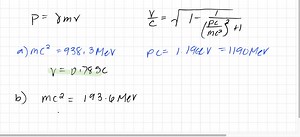 p = γmv    v/c = √(1 - 1/((pc/mc²)² + 1))
a) mc² = 938.3 MeV    pc = 1.19 GeV = 1190 MeV
v = 0.785c
b) mc² = 193.6 MeV